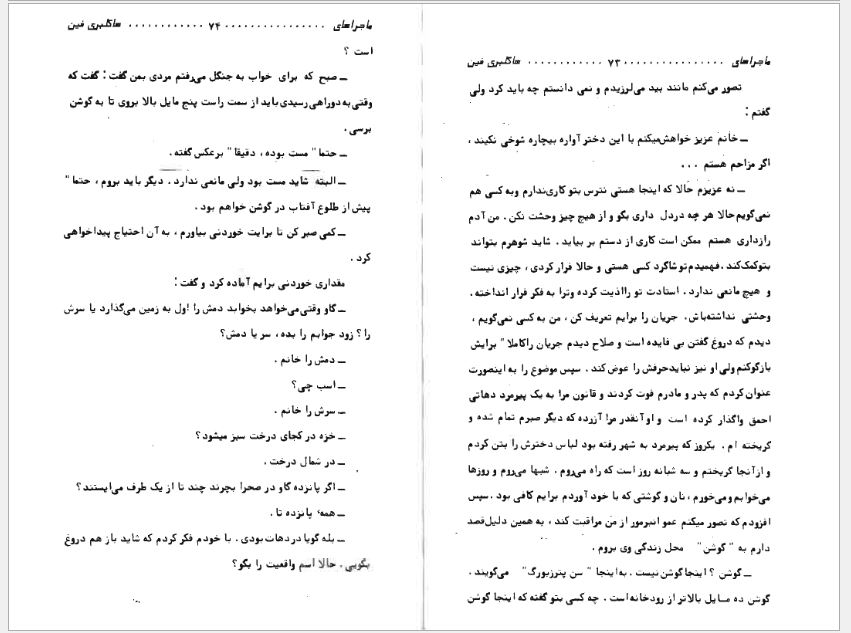 ماجراهای ................ ۷۳ ............ هاکلبری فین
تصور می‌کنم مانند بید می‌لرزیدم و نمی دانستم چه باید کرد ولی
گفتم :
ــ خانم عزیز خواهش‌میکنم با این دختر آواره بیچاره شوخی نکنید ،
اگر مزاحم هستم ...
ــ نه عزیزم حالا که اینجا هستی نترس بتو کاری‌ندارم وبه کسی هم
نمی‌گویم‌حالا هر چه دردل داری بگو و از هیچ چیز وحشت نکن . من آدم
رازداری هستم ممکن است کاری از دستم بر بیاید . شاید شوهرم بتواند
بتوکمک‌کند . فهمیدم‌تو شاگرد کسی هستی و حالا فرار کردی ، چیزی نیست
و هیچ مانعی ندارد . استادت تو رااذیت کرده وترا به فکر فرار انداخته .
وحشتی نداشته‌باش. جریان را برایم تعریف کن ، من به کسی نمی‌گویم ،
دیدم که دروغ گفتن بی فایده است و صلاح دیدم جریان راکاملا" برایش
بازگوکنم‌ولی او نیز نبایدحرفش را عوض کند . سپس موضوع را به اینصورت
عنوان کردم که پدر و مادرم فوت کردند و قانون مرا به یک پیرمرد دهاتی
احمق واگذار کرده است و او آنقدر مرا آزرده که دیگر صبرم تمام شده و
گریخته ام . یکروز که پیرمرد به شهر رفته بود لباس دخترش را بتن کردم
و از آنجا گریختم و سه شبانه روز است که راه می‌روم . شبها می‌روم و روزها
می‌خوابم و می‌خورم ، نان و گوشتی که با خود آوردم برایم کافی بود . سپس
افزودم که تصور میکنم عمو ابنرمور از من مراقبت کند ، به همین دلیل‌قصد
دارم به " گوشن" محل زندگی وی بروم .
ــ گوشن ؟ اینجا گوشن نیست . به اینجا " سن پترزبورگ" می‌گویند .
گوشن ده مـایل بالاتر از رودخانه‌است . چه کسی بتو گفته که اینجا گوشن
ماجراهای ................ ۷۴ ............ هاکلبری فین
است ؟
ــ صبح که برای خواب به جنگل می‌رفتم مردی بمن گفت : گفت که
وقتی به دوراهی رسیدی باید از سمت راست پنج مایل بالا بروی تا به گوشن
برسی .
ــ حتما" مست بوده ، دقیقا" برعکس گفته .
ــ البته شاید مست بود ولی مانعی ندارد . دیگر باید بروم ، حتما"
پیش از طلوع آفتاب در گوشن خواهم بود .
ــ کمی صبر کن تا برایت خوردنی بیاورم ، به آن احتیاج پیداخواهی
کرد .
مقداری خوردنی برایم آماده کرد و گفت :
ــ گاو وقتی می‌خواهد بخوابد دمش را اول به زمین می‌گذارد یا سرش
را ؟ زود جوابم را بده ، سر یا دمش؟
ــ دمش را خانم .
ــ اسب چی؟
ــ سرش را خانم .
ــ خزه در کجای درخت سبز میشود؟
ــ در شمال درخت .
ــ اگر پانزده گاو در صحرا بچرند چند تا از یک طرف می‌ایستند؟
ــ همه پانزده تا .
ــ بله گویا در دهات بودی . با خودم فکر کردم که شاید باز هم دروغ
بگویی . حالا اسم واقعیت را بگو؟